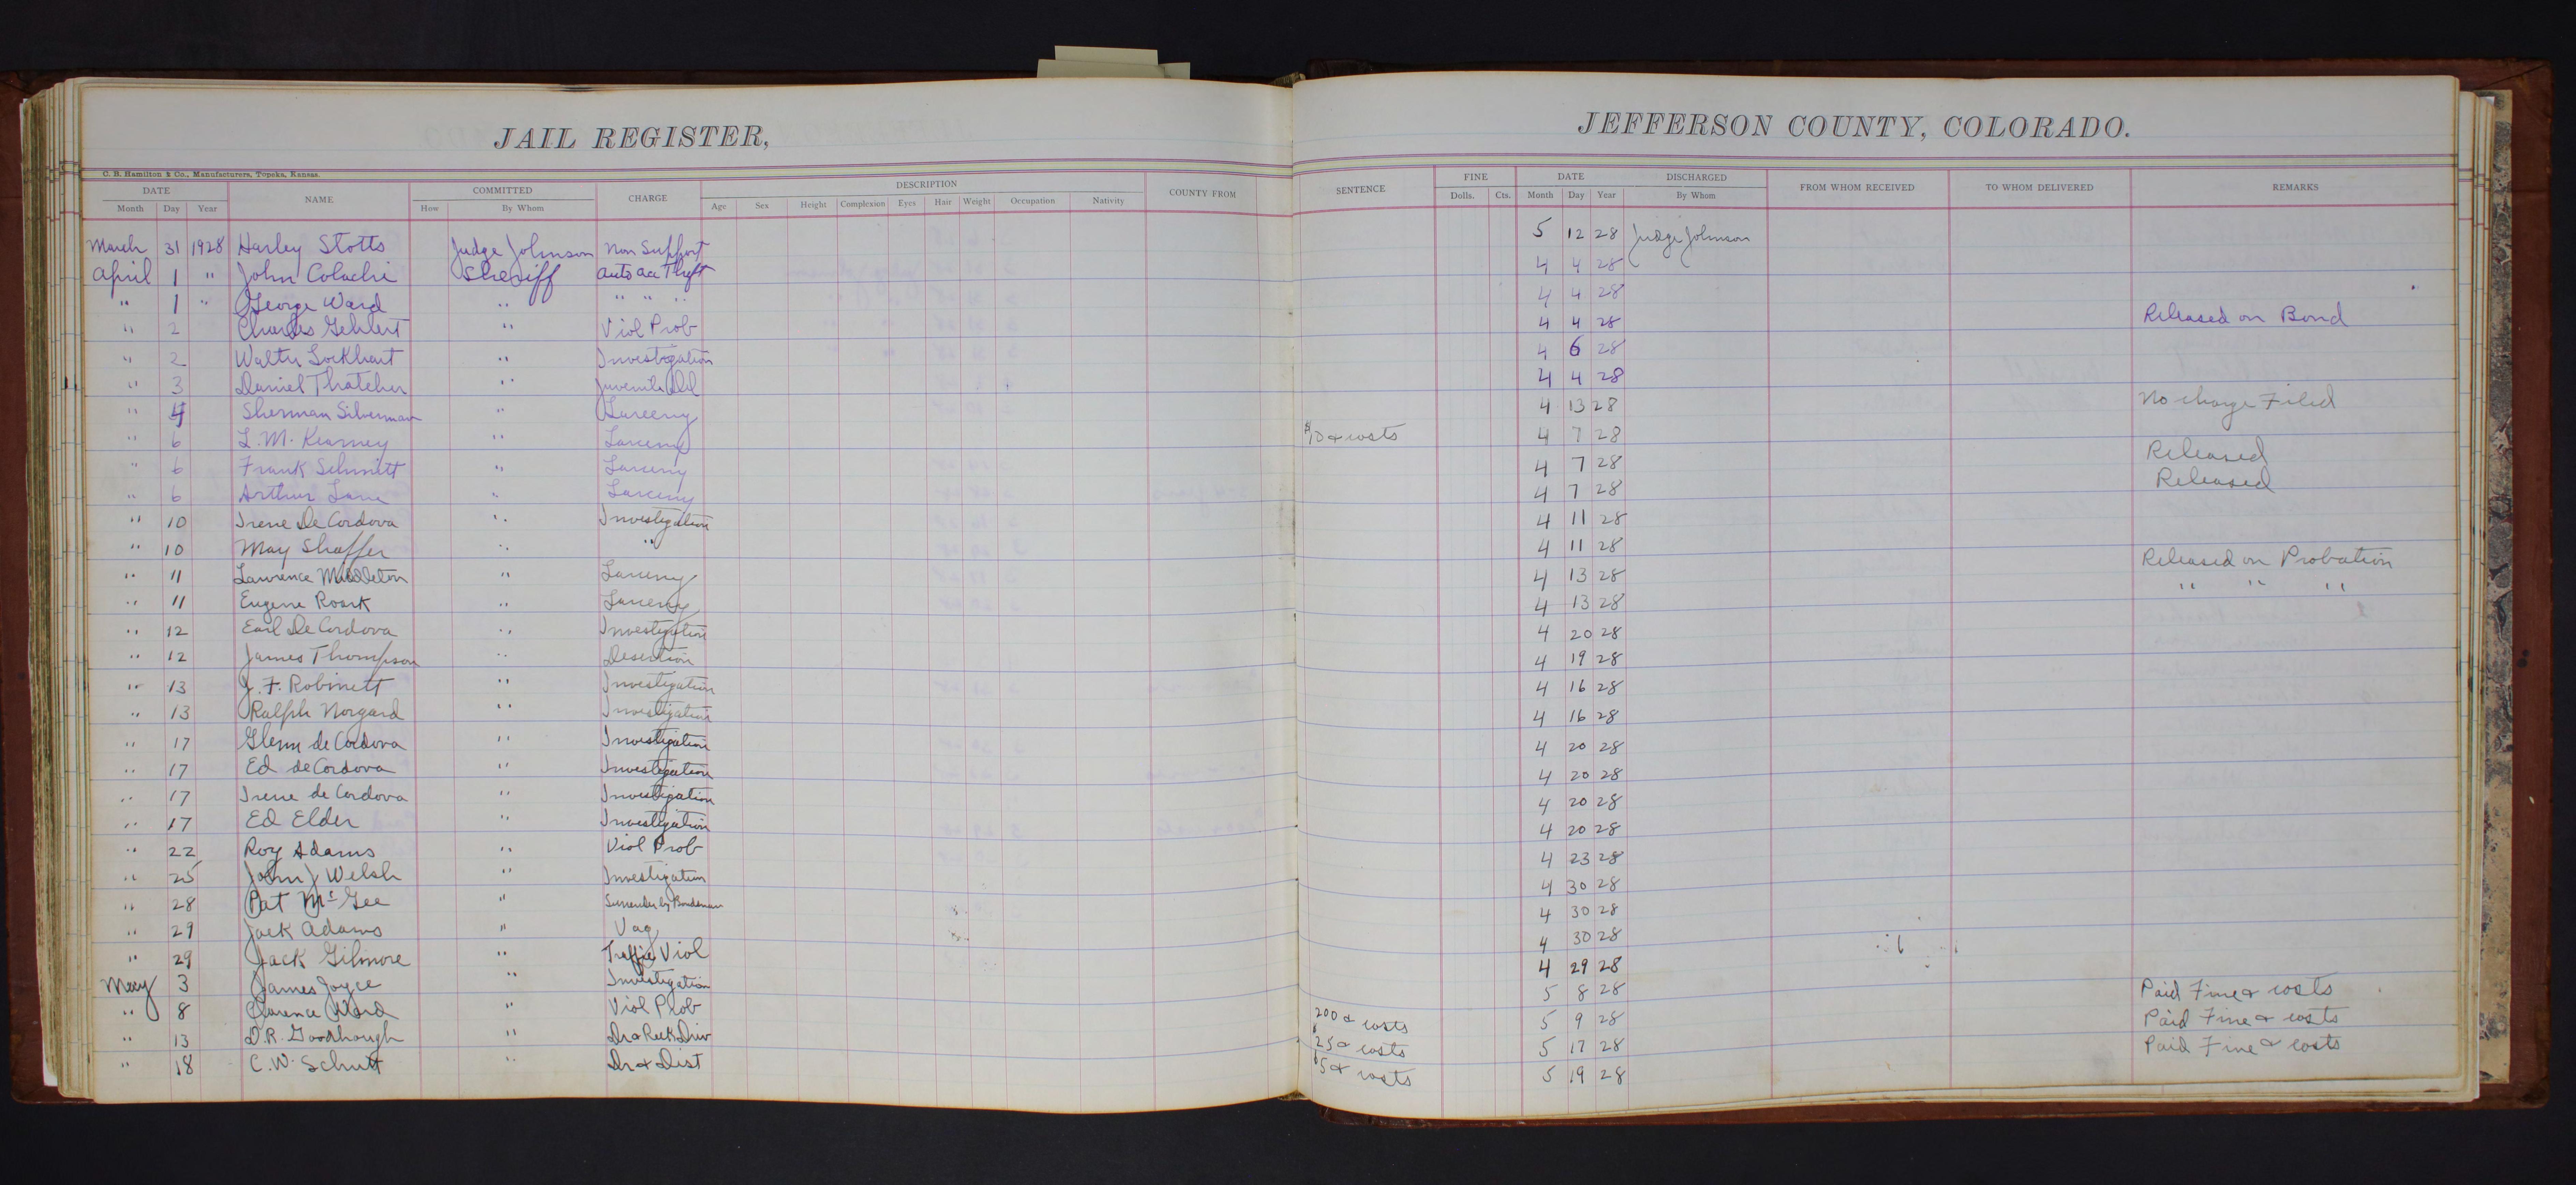 JAIL REGISTER,
JEFFERSON COUNTY, COLORADO.
C. B. Hamilton & Co., Manufacturers, Topeka, Kansas.
DATE NAME COMMITTED CHARGE DESCRIPTION COUNTY FROM SENTENCE FINE DATE DISCHARGED FROM WHOM RECEIVED TO WHOM DELIVERED REMARKS
Month Day Year How By Whom Age Sex Height Complexion Eyes Hair Weight Occupation Nativity Dolls. Cts. Month Day Year By Whom
March 31 1928 Harley Stotts Judge Johnson Non Support 5 12 28 Judge Johnson
April 1 " John Colachi Sheriff Auto Acc Theft 4 4 28
" 1 " George Ward " " " " 4 4 28
" 2 Charles Gehlert " Viol Prob 4 4 28 Released on Bond
" 2 Walter Lockhart " Investigation 4 6 28
" 3 Daniel Thatcher " Juvenile Del 4 4 28
" 4 Sherman Silverman " Larceny 4 13 28 No charge Filed
" 6 L. M. Kearney " Larceny $10 & costs 4 7 28
" 6 Frank Schmitt " Larceny 4 7 28 Released
" 6 Arthur Lane " Larceny 4 7 28 Released
" 10 Irene De Cordova " Investigation 4 11 28
" 10 May Shaffer " " 4 11 28
" 11 Lawrence Middleton " Larceny 4 13 28 Released on Probation
" 11 Eugene Roark " Larceny 4 13 28 " " "
" 12 Earl De Cordova " Investigation 4 20 28
" 12 James Thompson " Desertion 4 19 28
" 13 J. F. Robinett " Investigation 4 16 28
" 13 Ralph Norgard " Investigation 4 16 28
" 17 Glenn de Cordova " Investigation 4 20 28
" 17 Ed de Cordova " Investigation 4 20 28
" 17 Irene de Cordova " Investigation 4 20 28
" 17 Ed Elder " Investigation 4 20 28
" 22 Roy Adams " Viol Prob 4 23 28
" 25 John J Welsh " Investigation 4 30 28
" 28 Pat McGee " Surrender by Bondsman 4 30 28
" 29 Jack Adams " Vag 4 30 28
" 29 Jack Gilmore " Traffic Viol 4 29 28
May 3 James Joyce " Investigation 5 8 28 Paid Fine & costs
" 8 Clarence Ward " Viol Prob 200 & costs 5 9 28 Paid Fine & costs
" 13 D. R. Goodhough " Dr & Reck Driv $25 & costs 5 17 28 Paid Fine & costs
" 18 C. W. Schutt " Dr & Dist $5 & costs 5 19 28